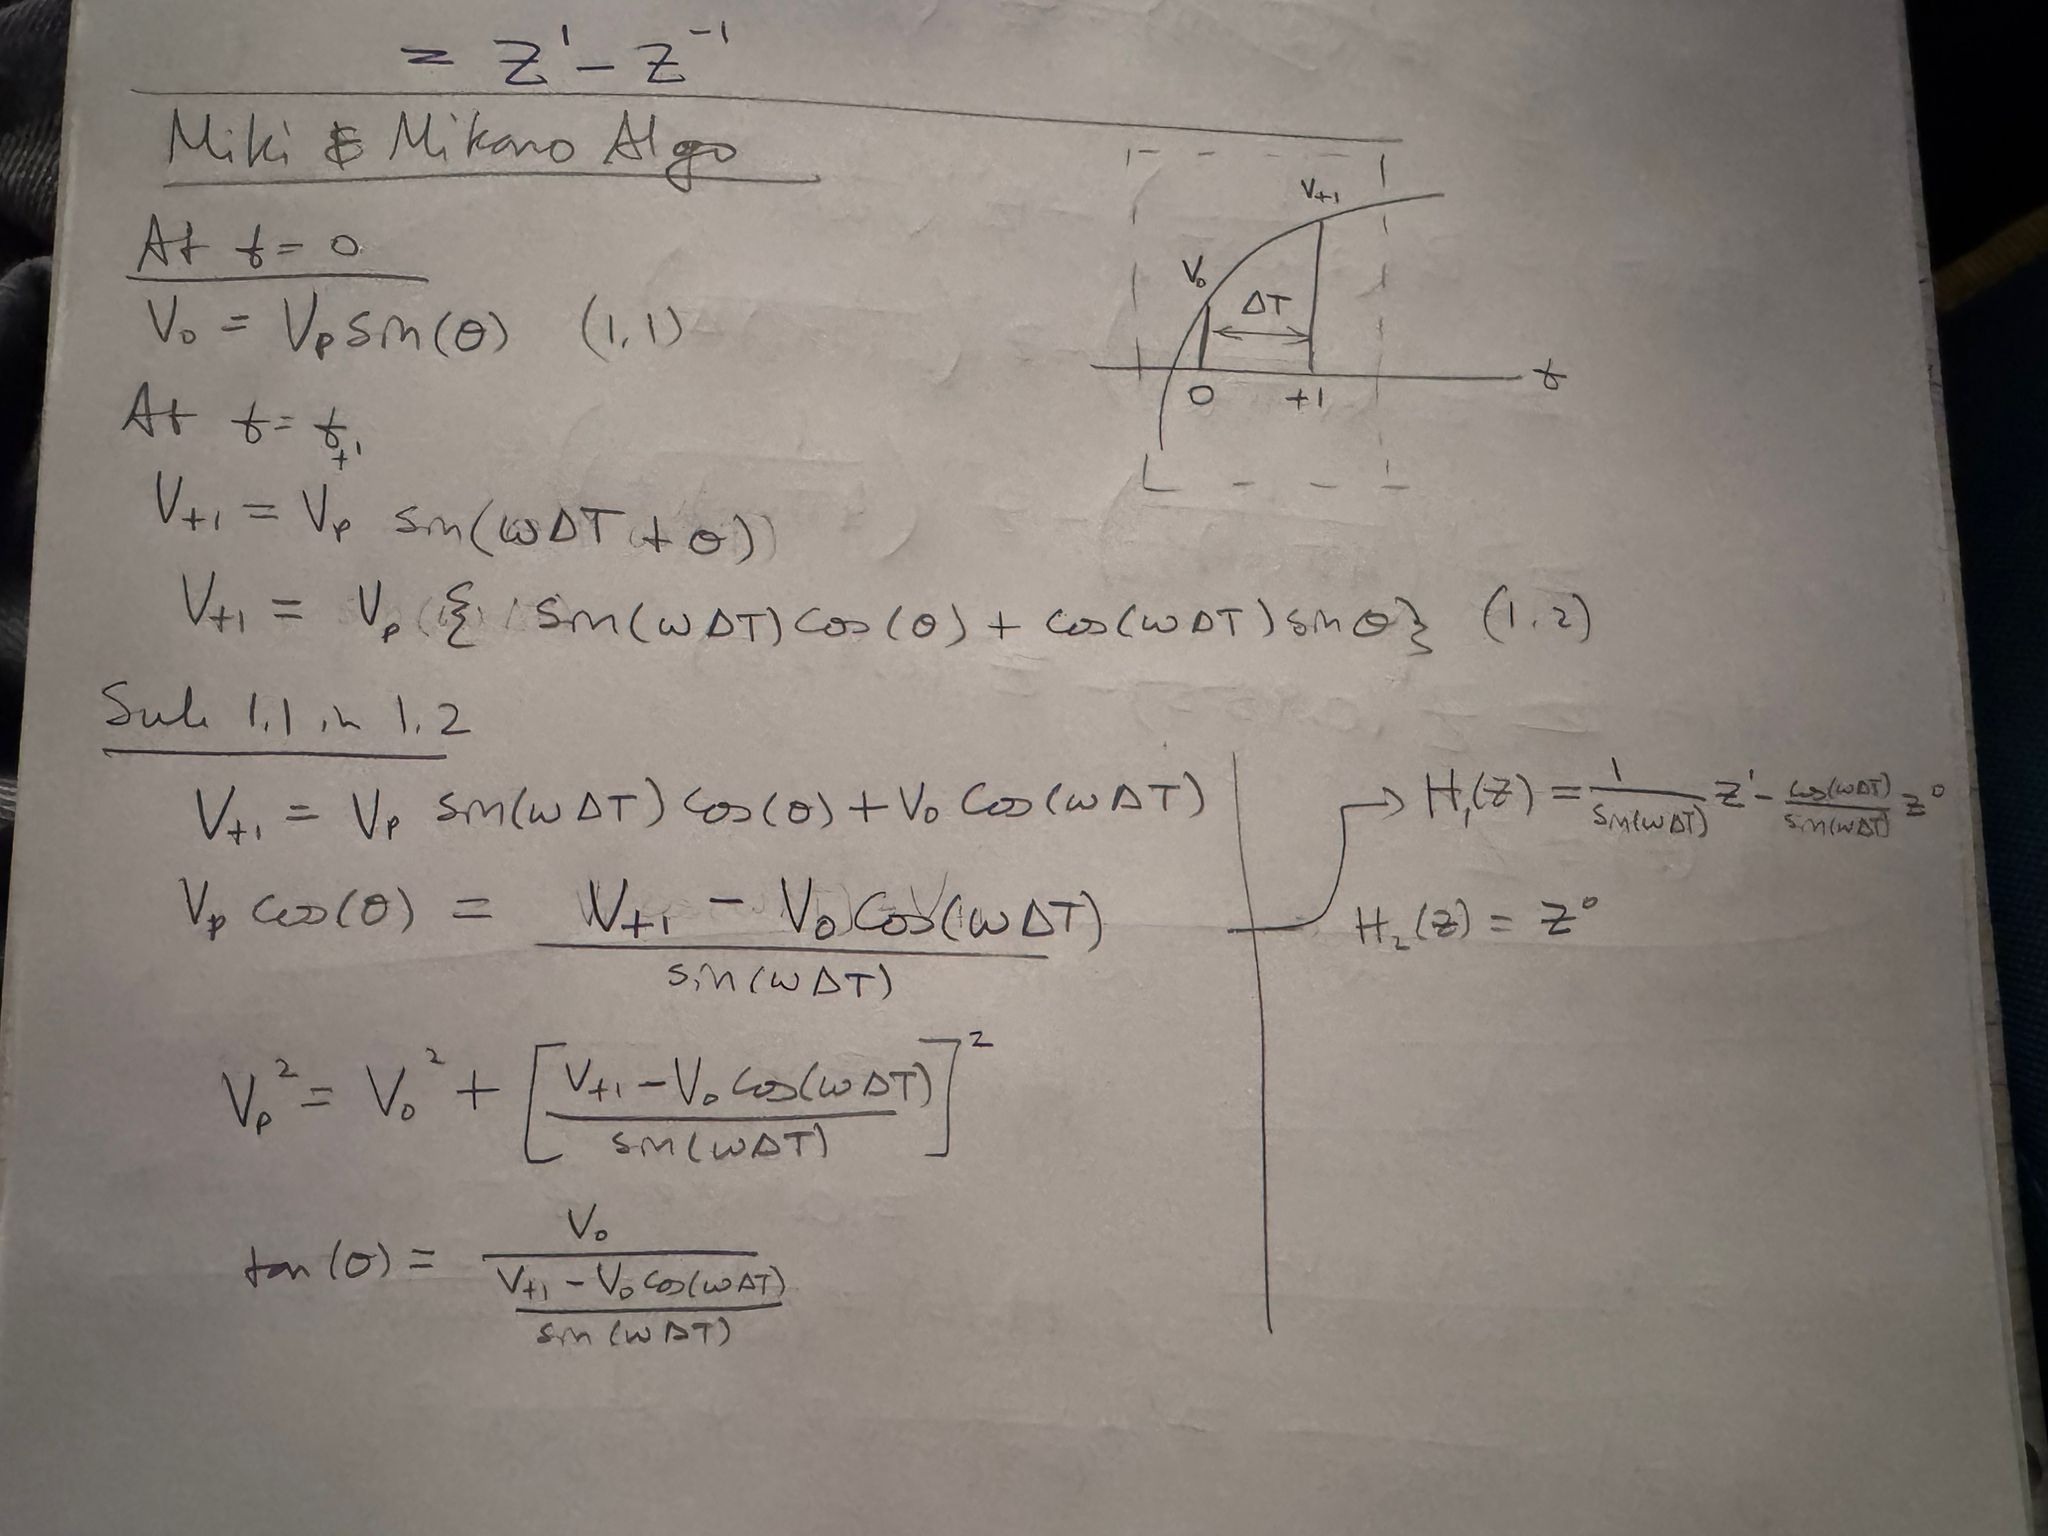 = Z¹ - Z⁻¹
Miki & Mikano Algo
At t = 0
V₀ = Vₚ sin(θ) (1,1)
At t = t₊₁
V₊₁ = Vₚ sin(ωΔT + θ)
V₊₁ = Vₚ { sin(ωΔT) cos(θ) + cos(ωΔT) sin θ } (1.2)
Sub 1.1 in 1.2
V₊₁ = Vₚ sin(ωΔT) cos(θ) + V₀ cos(ωΔT)
Vₚ cos(θ) = (V₊₁ - V₀ cos(ωΔT)) / sin(ωΔT)
Vₚ² = V₀² + [(V₊₁ - V₀ cos(ωΔT)) / sin(ωΔT)]²
tan(θ) = V₀ / ((V₊₁ - V₀ cos(ωΔT)) / sin(ωΔT))
V₊₁
V₀
ΔT
t
0 +1
→ H₁(Z) = 1/sin(ωΔT) Z¹ - cos(ωΔT)/sin(ωΔT) Z⁰
H₂(Z) = Z⁰